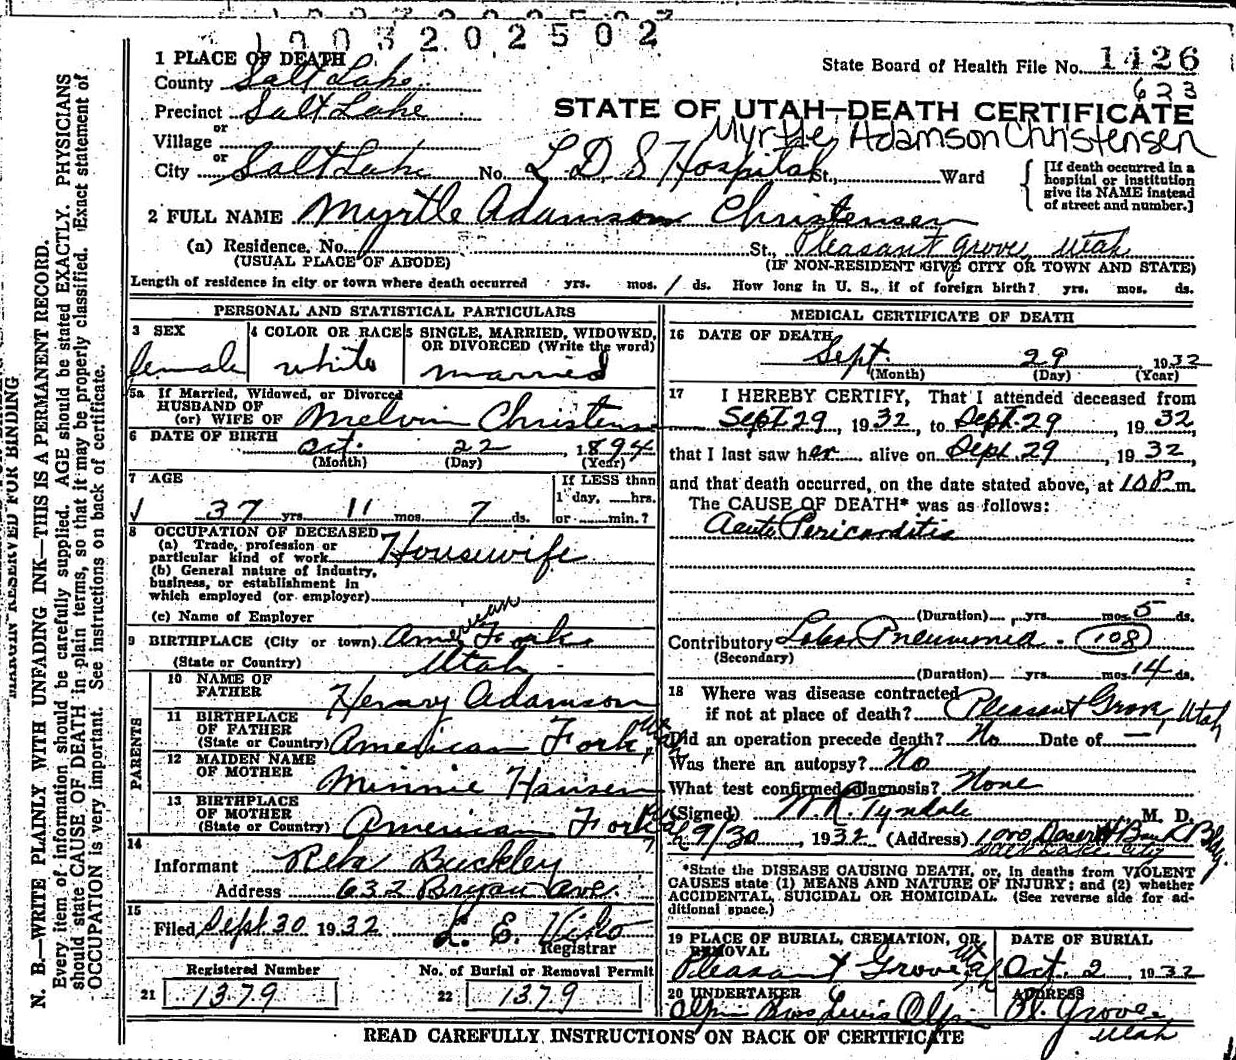 1003202502
1 PLACE OF DEATH
County Salt Lake
State Board of Health File No. 1426
623
Precinct Salt Lake
STATE OF UTAH—DEATH CERTIFICATE
or
Village
Myrtle Adamson Christensen
or
City Salt Lake No. L. D. S Hospital St., Ward
[If death occurred in a hospital or institution give its NAME instead of street and number.]
2 FULL NAME Myrtle Adamson Christensen
(a) Residence. No. St., Pleasant Grove, Utah
(USUAL PLACE OF ABODE) (IF NON-RESIDENT GIVE CITY OR TOWN AND STATE)
Length of residence in city or town where death occurred yrs. mos. 1 ds. How long in U. S., if of foreign birth? yrs. mos. ds.
PERSONAL AND STATISTICAL PARTICULARS
3 SEX 4 COLOR OR RACE 5 SINGLE, MARRIED, WIDOWED,
OR DIVORCED (Write the word)
female white married
5a If Married, Widowed, or Divorced
HUSBAND OF
(or) WIFE OF Melvin Christens
6 DATE OF BIRTH
Oct. 22, 1894
(Month) (Day) (Year)
7 AGE If LESS than
1 day, hrs.
37 yrs. 11 mos. 7 ds. or min.?
8 OCCUPATION OF DECEASED
(a) Trade, profession or
particular kind of work Housewife
(b) General nature of industry,
business, or establishment in
which employed (or employer)
(c) Name of Employer
9 BIRTHPLACE (City or town) American Fork
(State or Country) Utah
PARENTS
10 NAME OF
FATHER Henry Adamson
11 BIRTHPLACE
OF FATHER
(State or Country) American Fork, Utah
12 MAIDEN NAME
OF MOTHER Minnie Hansen
13 BIRTHPLACE
OF MOTHER
(State or Country) American Fork
14
Informant Reba Buckley
Address 632 Bryan Ave.
15
Filed Sept 30 1932 L. E.
Registrar
Registered Number No. of Burial or Removal Permit
21 1379 22 1379
MEDICAL CERTIFICATE OF DEATH
16 DATE OF DEATH
Sept. 29 1932
(Month) (Day) (Year)
17 I HEREBY CERTIFY, That I attended deceased from
Sept. 29, 1932, to Sept. 29, 1932,
that I last saw her alive on Sept. 29, 1932,
and that death occurred, on the date stated above, at m.
The CAUSE OF DEATH* was as follows:
Acute Pericarditis
(Duration) yrs. mos. 5 ds.
Contributory Lobar Pneumonia - 108
(Secondary)
(Duration) yrs. mos. 14 ds.
18 Where was disease contracted
if not at place of death? Pleasant Grove, Utah
Did an operation precede death? No Date of —
Was there an autopsy? No
What test confirmed diagnosis? None
(Signed) W. R. Tyndale, M. D.
9/30, 1932 (Address) 1000 Deseret Bank Bldg.
Salt Lake City
*State the DISEASE CAUSING DEATH, or, in deaths from VIOLENT
CAUSES state (1) MEANS AND NATURE OF INJURY; and (2) whether
ACCIDENTAL, SUICIDAL OR HOMICIDAL. (See reverse side for ad-
ditional space.)
19 PLACE OF BURIAL, CREMATION, OR
REMOVAL
Pleasant Grove Utah
DATE OF BURIAL
Oct. 2, 1932
20 UNDERTAKER ADDRESS
Pl. Grove
Utah
READ CAREFULLY INSTRUCTIONS ON BACK OF CERTIFICATE
MARGIN RESERVED FOR BINDING
N. B.—WRITE PLAINLY WITH UNFADING INK—THIS IS A PERMANENT RECORD.
Every item of information should be carefully supplied. AGE should be stated EXACTLY. PHYSICIANS
should state CAUSE OF DEATH in plain terms, so that it may be properly classified. Exact statement of
OCCUPATION is very important. See instructions on back of certificate.